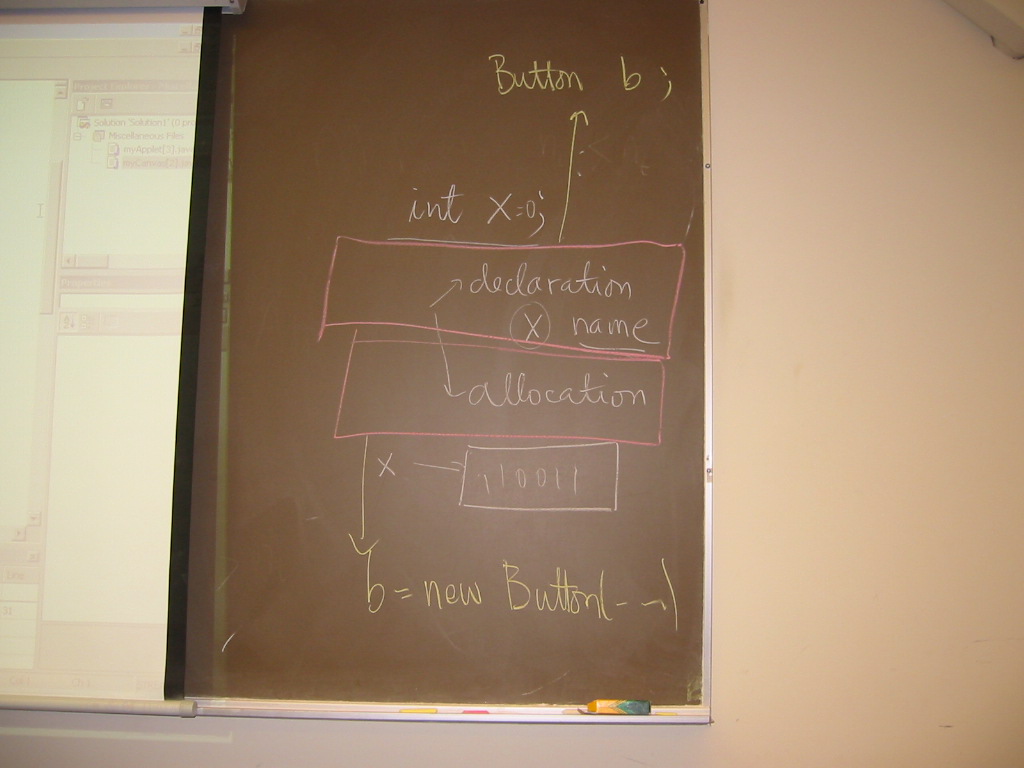 Solution 'Solution1' (0 pro
Miscellaneous Files
myApplet[1].java
myCanvas[2].java
Button b ;
int x=0;
declaration
x name
allocation
x → 110011
b = new Button(- -)